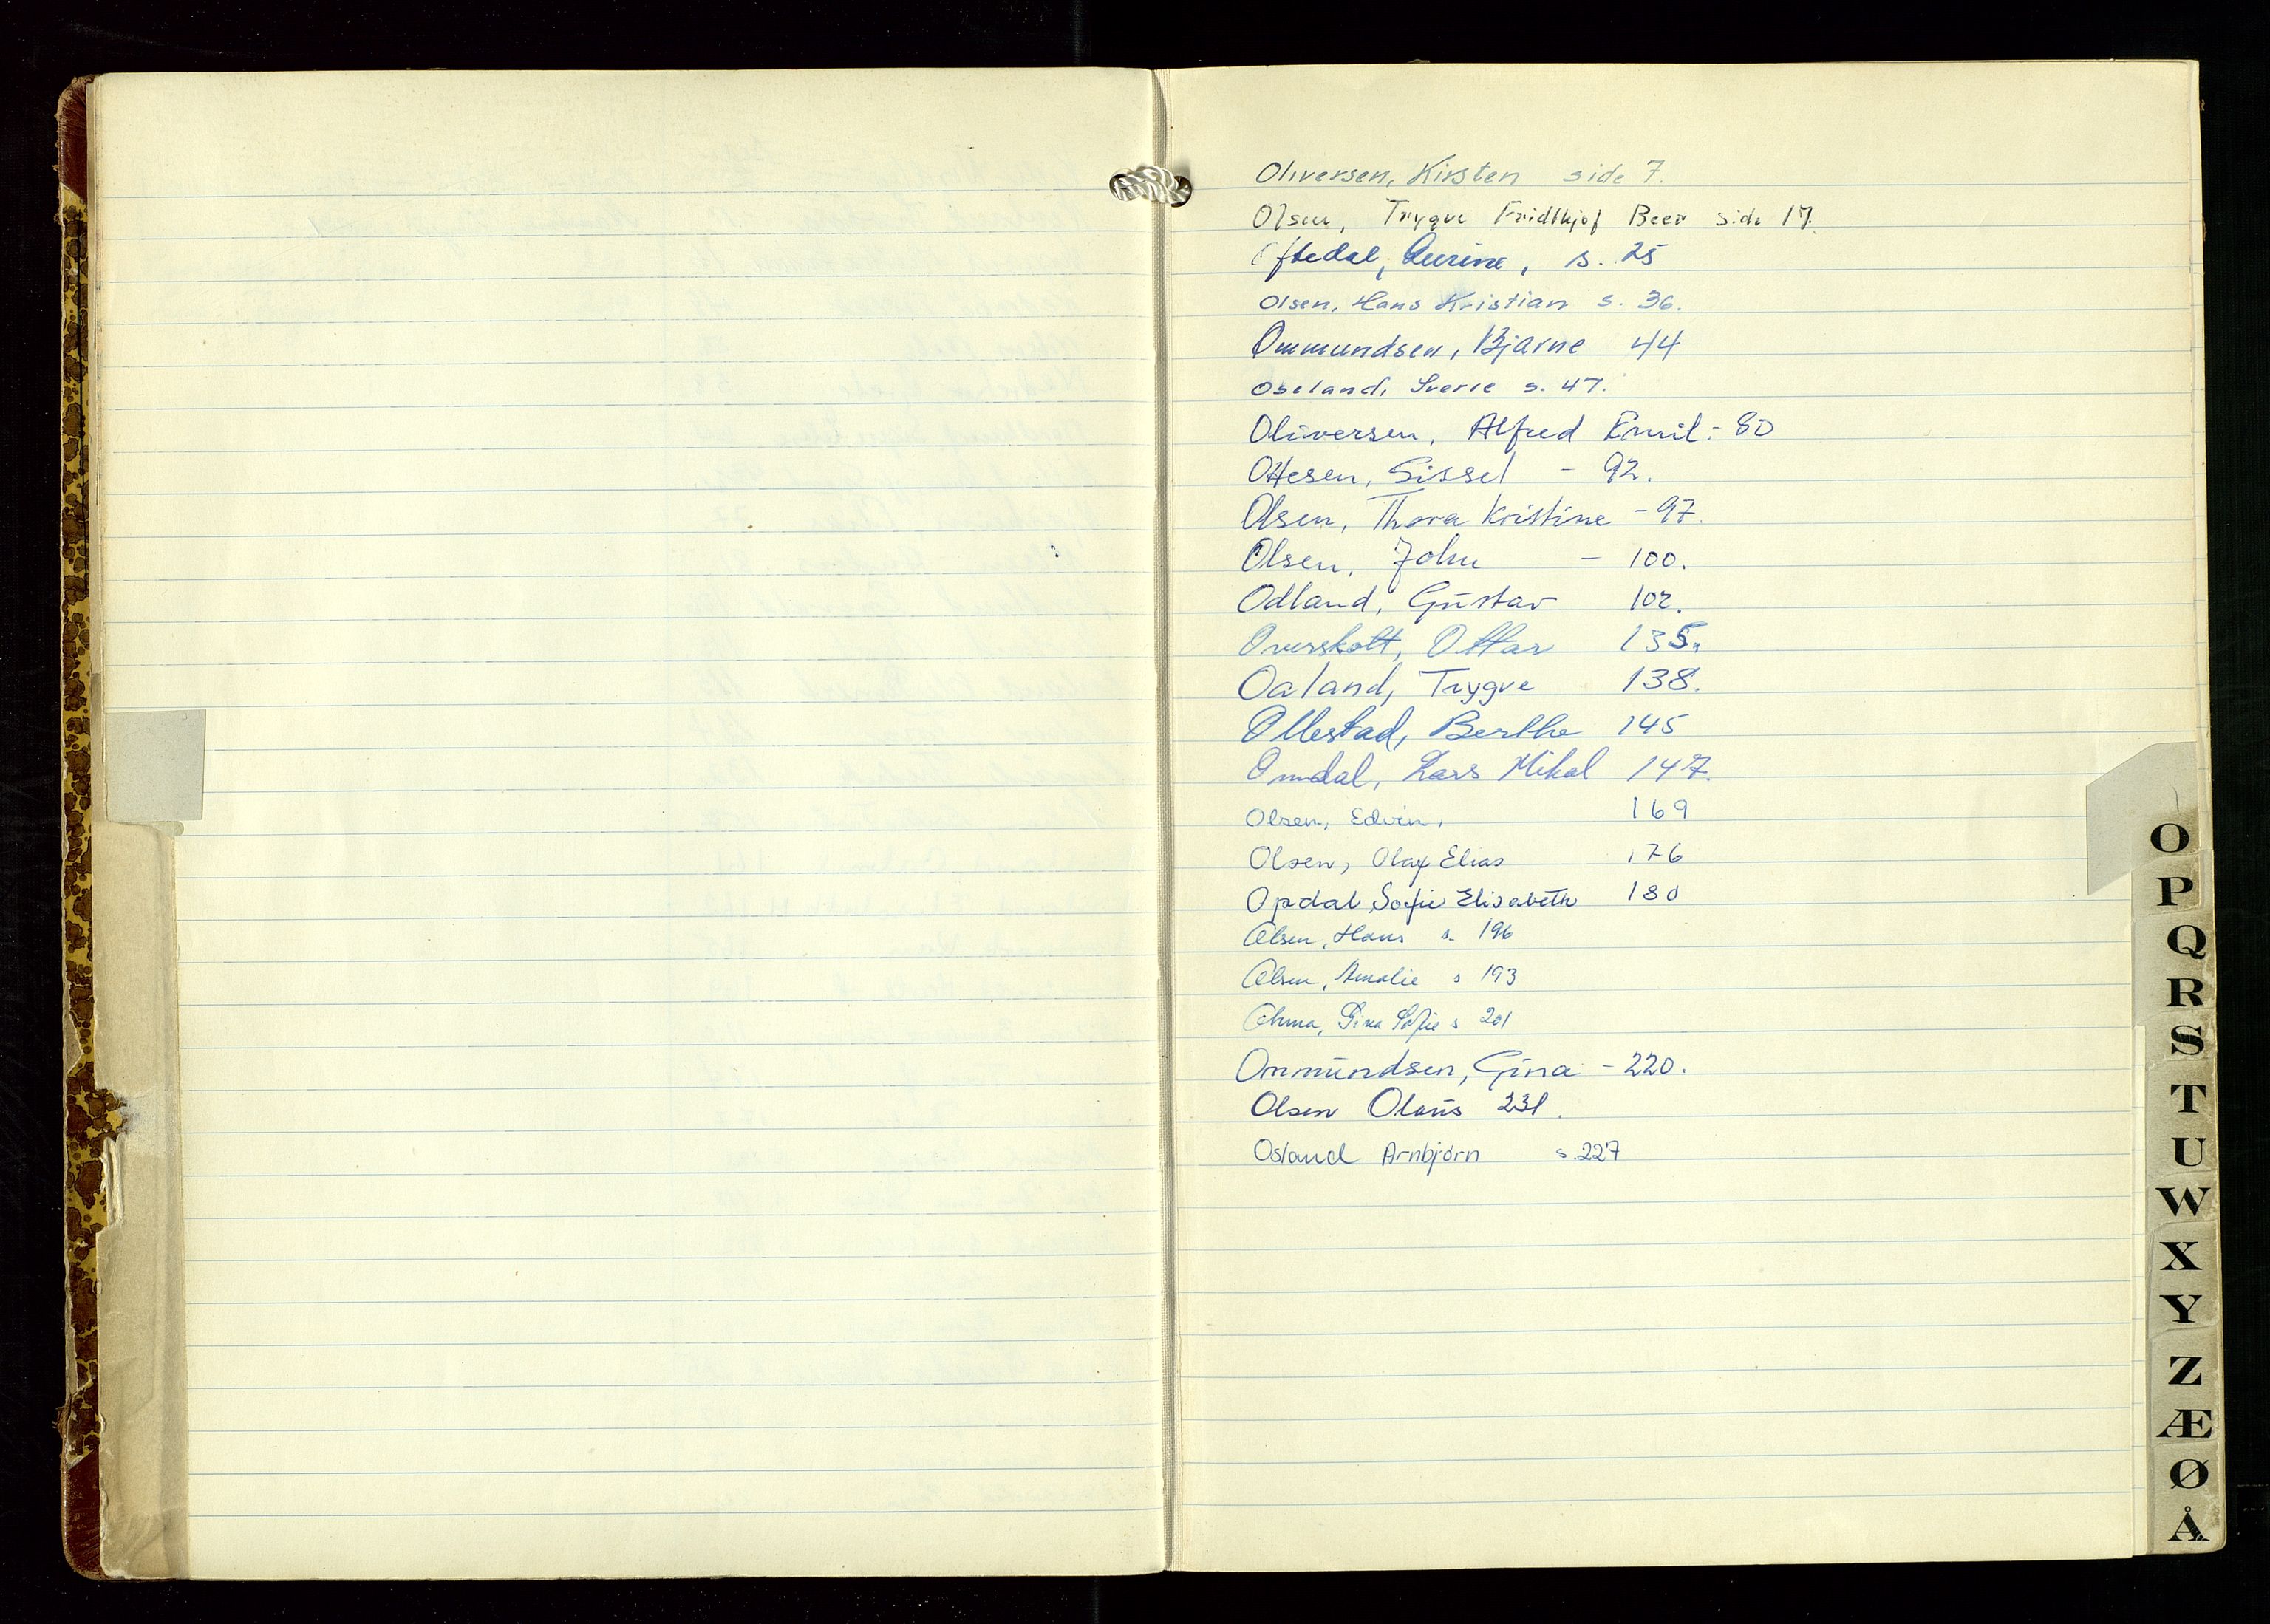 Oliversen, Kirsten side 7.
Olsen, Trygve Fridthjof Beer side 17.
Oftedal, Laurine, s. 25
Olsen, Hans Kristian s. 36.
Ommundsen, Bjarne 44
Oseland, Sverre s. 47.
Oliversen, Alfred Emil - 80
Ottesen, Sissel - 92.
Olsen, Thora Kristine - 97.
Olsen, John - 100.
Odland, Gustav 102.
Overskott, Ottar 135.
Oaland, Trygve 138.
Ollestad, Berthe 145
Omdal, Lars Mikal 147.
Olsen, Edvin, 169
Olsen, Olaf Elias 176
Opdal, Sofie Elisabeth 180
Olsen, Hans s. 196
Olsen, Amalie s 193
Sofie s 201
Ommundsen, Gina - 220.
Olsen Olaus 231.
Osland Arnbjørn s. 227
O
P
Q
R
S
T
U
W
X
Y
Z
Æ
Ø
Å